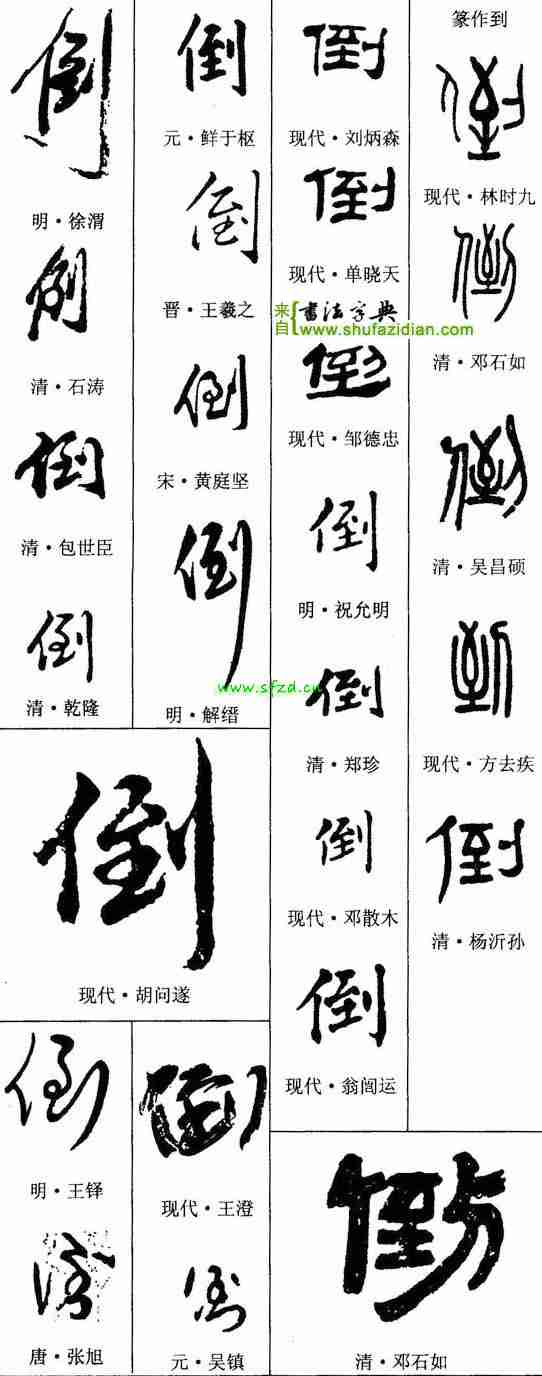 篆作到
倒
现代·林时九
倒
清·邓石如
倒
清·吴昌硕
到
现代·方去疾
倒
清·杨沂孙
倒
现代·刘炳森
倒
现代·单晓天
来自{书法字典
www.shufazidian.com
倒
现代·邹德忠
倒
明·祝允明
倒
清·郑珍
倒
现代·邓散木
倒
现代·翁闿运
倒
元·鲜于枢
倒
晋·王羲之
倒
宋·黄庭坚
倒
明·解缙
www.sfzd.cn
倒
明·徐渭
倒
清·石涛
倒
清·包世臣
倒
清·乾隆
倒
现代·胡问遂
倒
明·王铎
倒
唐·张旭
倒
现代·王澄
倒
元·吴镇
倒
清·邓石如